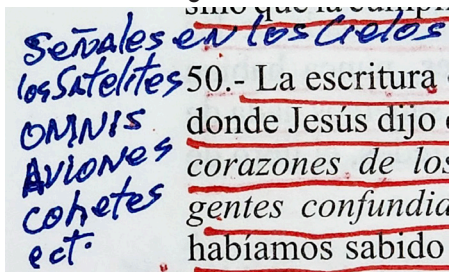 sino que la cumpli
Señales en los cielos
los Satelites
50.- La escritura
OMNIS
donde Jesús dijo
AVIONES
corazones de los
cohetes
gentes confundia
ect.
habíamos sabido